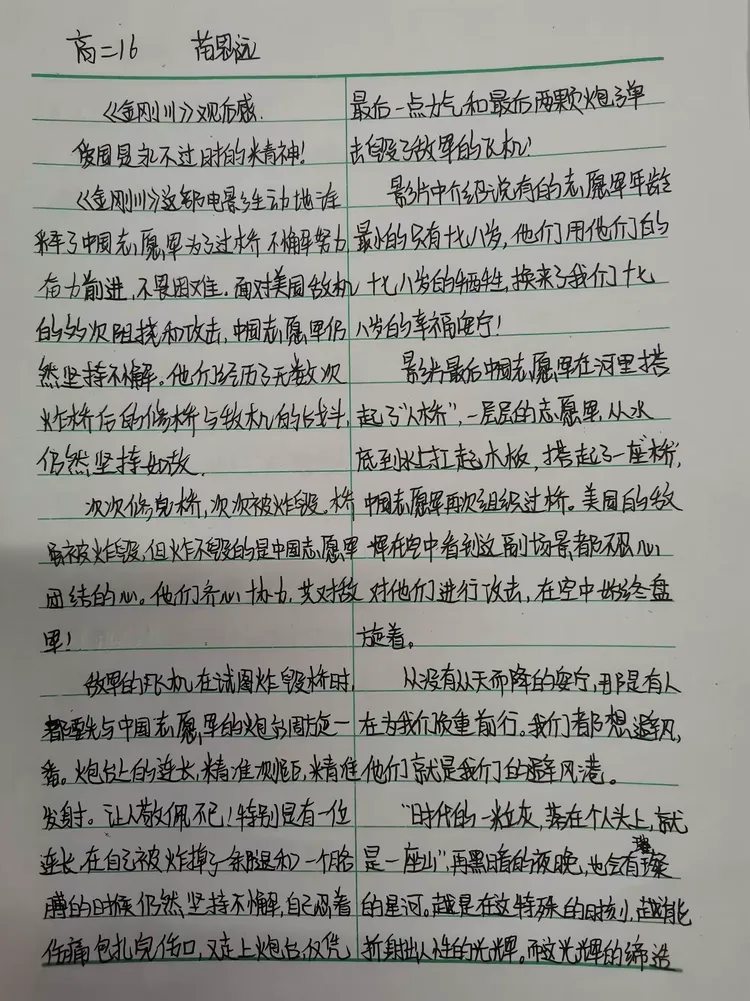 高二16 苗思远
《金刚川》观后感
爱国是永不过时的精神！
《金刚川》这部电影生动地诠
释了中国志愿军为了过桥不懈努力
奋力前进，不畏困难。面对美国敌机
的多次阻挠和攻击，中国志愿军仍
然坚持不懈。他们经历了无数次
炸桥后的修桥与敌机的战斗，
仍然坚持如故。
次次修完桥，次次被炸毁。桥
会被炸毁，但炸不毁的是中国志愿军
团结的心。他们齐心协力，共对敌
军！
敌军的飞机在试图炸毁桥时，
都要先与中国志愿军的炮台周旋一
番。炮台上的连长，精准观后，精准
发射。让人敬佩不已！特别是有一位
连长，在自己被炸掉了一条腿和一个胳
膊的时候仍然坚持不懈，自己忍着
伤痛包扎完伤口，又走上炮台，仅凭
最后一点力气和最后两颗炮弹
去毁了敌军的飞机！
影片中介绍说有的志愿军年龄
最小的只有十七八岁，他们用他们的
十七八岁的牺牲，换来了我们十七
八岁的幸福安宁！
影片最后中国志愿军在河里搭
起了“人桥”，一层层的志愿军，从水
底到水上扛起木板，搭起了一座桥，
中国志愿军再次组织过桥。美国的敌
军在空中看到这副场景都不忍心
对他们进行攻击，在空中始终盘
旋着。
从没有从天而降的安宁，那是有人
在为我们负重前行。我们都想避风，
他们就是我们的避风港。
“时代的一粒灰，落在个人头上，就
是一座山”，再黑暗的夜晚，也会有璀璨
的星河。越是在这特殊的时刻，越能
折射出人性的光辉。而这光辉的缔造